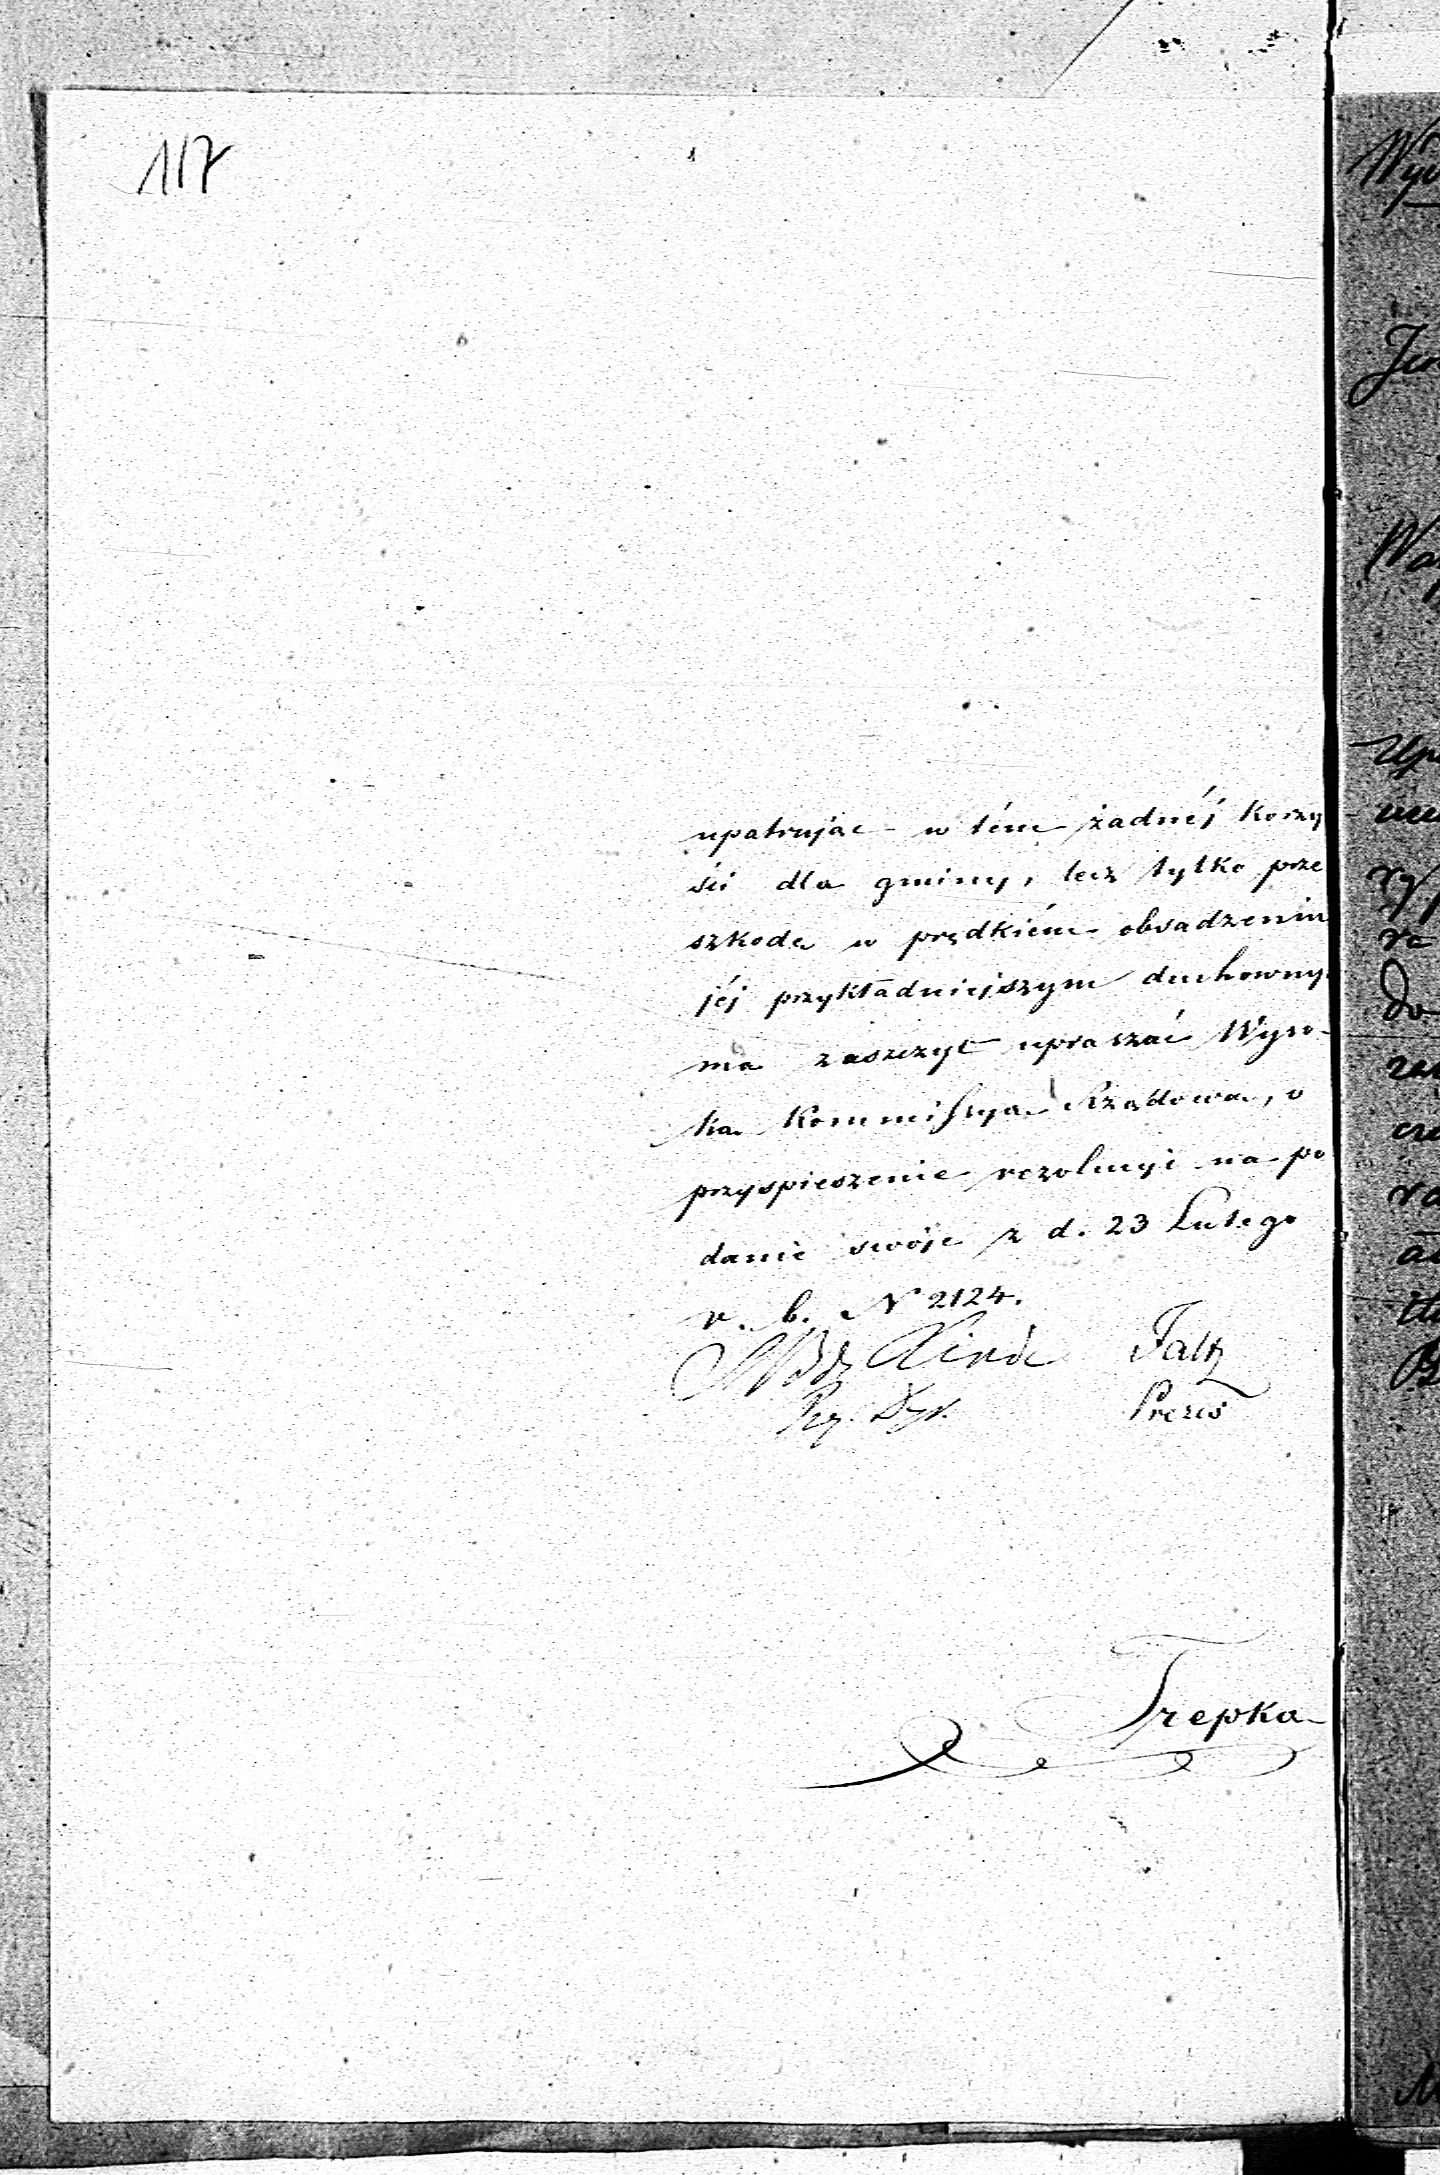 117
upatrując w tém żadnéj korzy
ści dla gminy, lecz tylko prze
szkodę w prędkiém obsadzeniu
jéj przykładniejszym duchowny
ma zaszczyt upraszać Wyso-
ką Kommissyą Rządową, o
przyspieszenie rezolucyi na po
danie swoje z d. 23 Lutego
r. b. N 2124.
Faltz
Prezes
Trepka